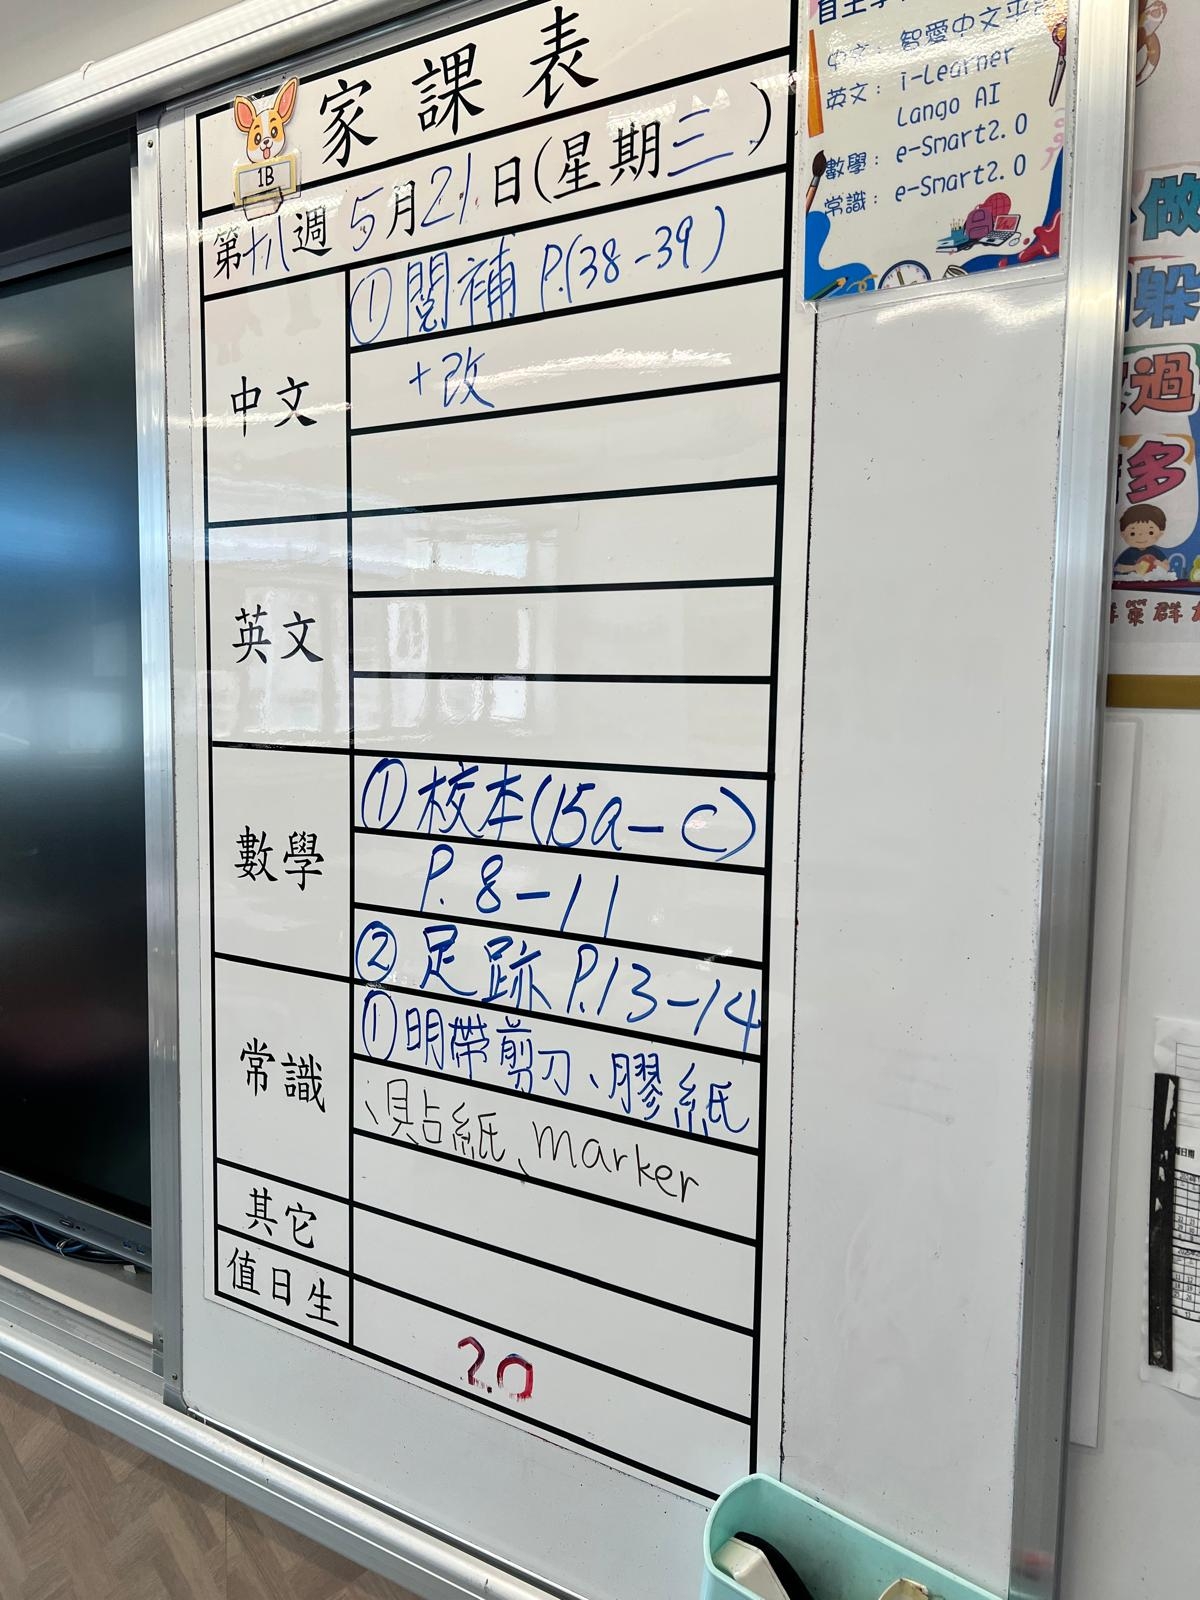 家課表
1B
第十八週 5月21日(星期三)
中文
① 閱補 P.(38-39)
+改
英文
數學
① 校本(15a-c)
P.8-11
② 足跡 P.13-14
常識
① 明帶剪刀、膠紙
、貼紙、marker
其它
值日生
20
中文: 智愛中文平
英文: i-Learner
Lango AI
數學: e-Smart2.0
常識: e-Smart2.0
做
躲
過
多
策群